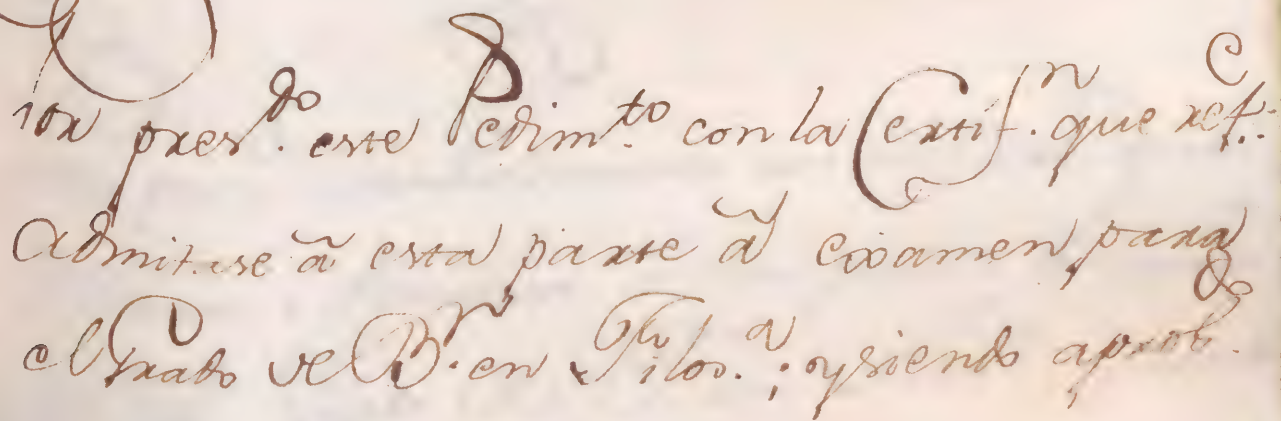 por pres.do este Pedim.to con la Certif.n que ref.e
Admitase â esta parte â exâmen para
el Grado de B.r en Filos.a; y siendo aprob.do